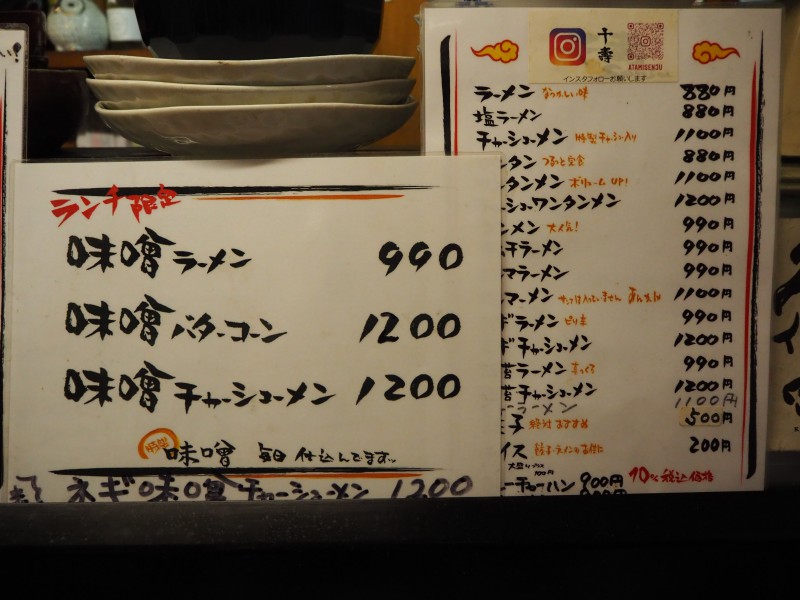 い!
ランチ限定
味噌ラーメン 990
味噌バターコーン 1200
味噌チャーシューメン 1200
特製 味噌 毎日 仕込んでます
ネギ味噌チャーシューメン 1200
千寿
ATAMISENJU
インスタフォローお願いします
ラーメン なつかしい味 880円
塩ラーメン 880円
チャーシューメン 特製チャーシュー入り 1100円
ンタン 880円
タンメン ボリュームUP! 1100円
シューワンタンメン 1200円
ンメン 大人気! 990円
ラーメン 990円
マラーメン 990円
マーメン 1100円
ラーメン ピリ辛 990円
チャーシューメン 1200円
ラーメン 990円
チャーシューメン 1200円
ラーメン 1100円
子 絶対おすすめ 500円
イス 200円
100円
チャーハン 900円
10%税込価格